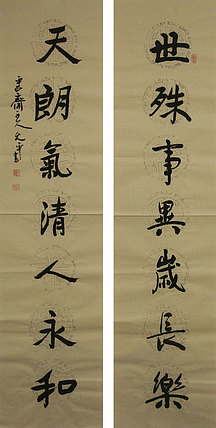 世殊事異歲長樂
天朗氣清人永和